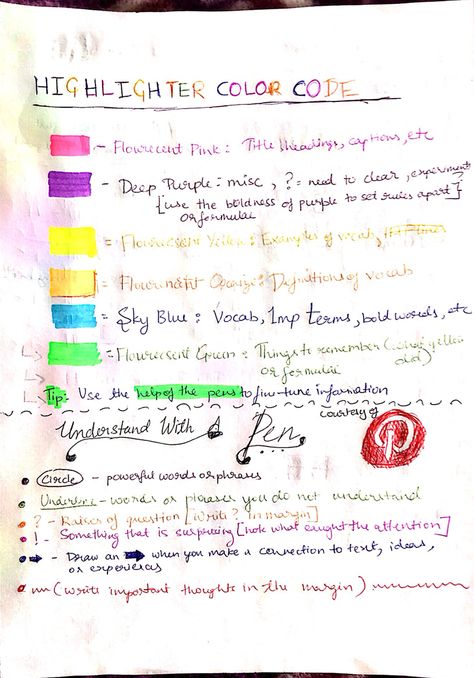 HIGHLIGHTER COLOR CODE
- Flourecent Pink: Title Headings, captions, etc
- Deep Purple: misc, ? = need to clear, experiments
[use the boldness of purple to set rules apart]
or formulae ?
= Flourescent Yellow: Examples of vocab,
= Flourescent Orange: Definitions of vocab
= Sky Blue: Vocab, Imp terms, bold words, etc
= Flourescent Green: Things to remember
or formulae
Tip: Use the help of the pens to fine-tune information
courtesy of
Understand With A Pen
P
Circle - powerful words or phrases
Underline - words or phrases you do not understand
? - Raises of question [Write ? in margin]
! - Something that is surprising [note what caught the attention]
➡ - Draw an ➡ when you make a connection to text, ideas,
or experiences
(write important thoughts in the margin)